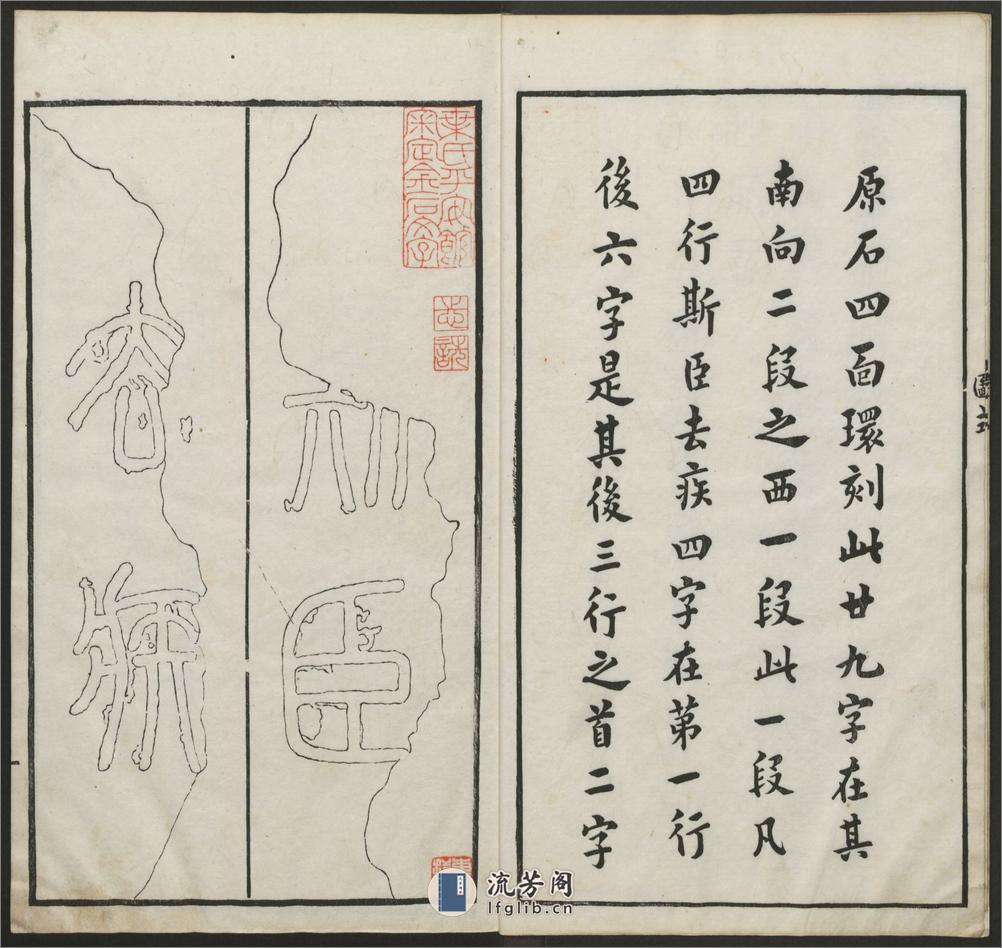 原石四面環刻此廿九字在其
南向二段之西一段此一段凡
四行斯臣去疾四字在第一行
後六字是其後三行之首二字
斯臣
去疾
葉氏平安館
審定金石文字
志詵
流芳阁
lfglib.cn